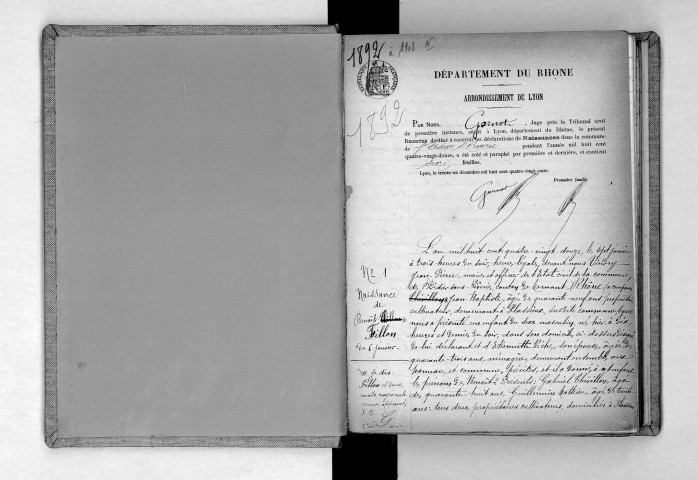 1892 à 1908 N
DÉPARTEMENT DU RHONE
ARRONDISSEMENT DE LYON
1892
PAR NOUS, Garnot, Juge près le Tribunal civil
de première instance, séant à Lyon, département du Rhône, le présent
REGISTRE destiné à recevoir les déclarations de Naissances dans la commune
de St Didier s/ Riverie pendant l'année mil huit cent
quatre-vingt-douze, a été coté et paraphé par première et dernière, et contient
feuilles.
Lyon, le trente-un décembre mil huit cent quatre-vingt-onze.
Première feuille
Garnot
L'an mil huit cent quatre-vingt douze, le sept janvier
à trois heures du soir, heure légale, devant nous
Jean Pierre, maire et officier de l'État civil de la commune
de St Didier-sous-Riverie, canton de Mornant, Rhône, a comparu
Thivillon Jean Baptiste, âgé de quarante-neuf ans, propriétaire
cultivateur, demeurant à Plassieux, susdite commune, lequel
nous a présenté un enfant du sexe masculin, né hier, à six
heures et demie du soir, dans son domicile, ci-dessus
de lui déclarant et d'Etiennette Riche, son épouse, âgée de
quarante-trois ans, ménagère, demeurant ensemble, aux
hameau et commune, précités, et il a donné à l'enfant
le prénom de Benoît. Présents: Gabriel Thivillon, âgé
de quarante-huit ans, Guillermin Mathieu, âgé de trente
ans: tous deux propriétaires cultivateurs, domiciliés à
No 1
Naissance
de
Benoît
Fillon
du 6 janvier
Je dis:
Fillon et deux
mots rayés nuls